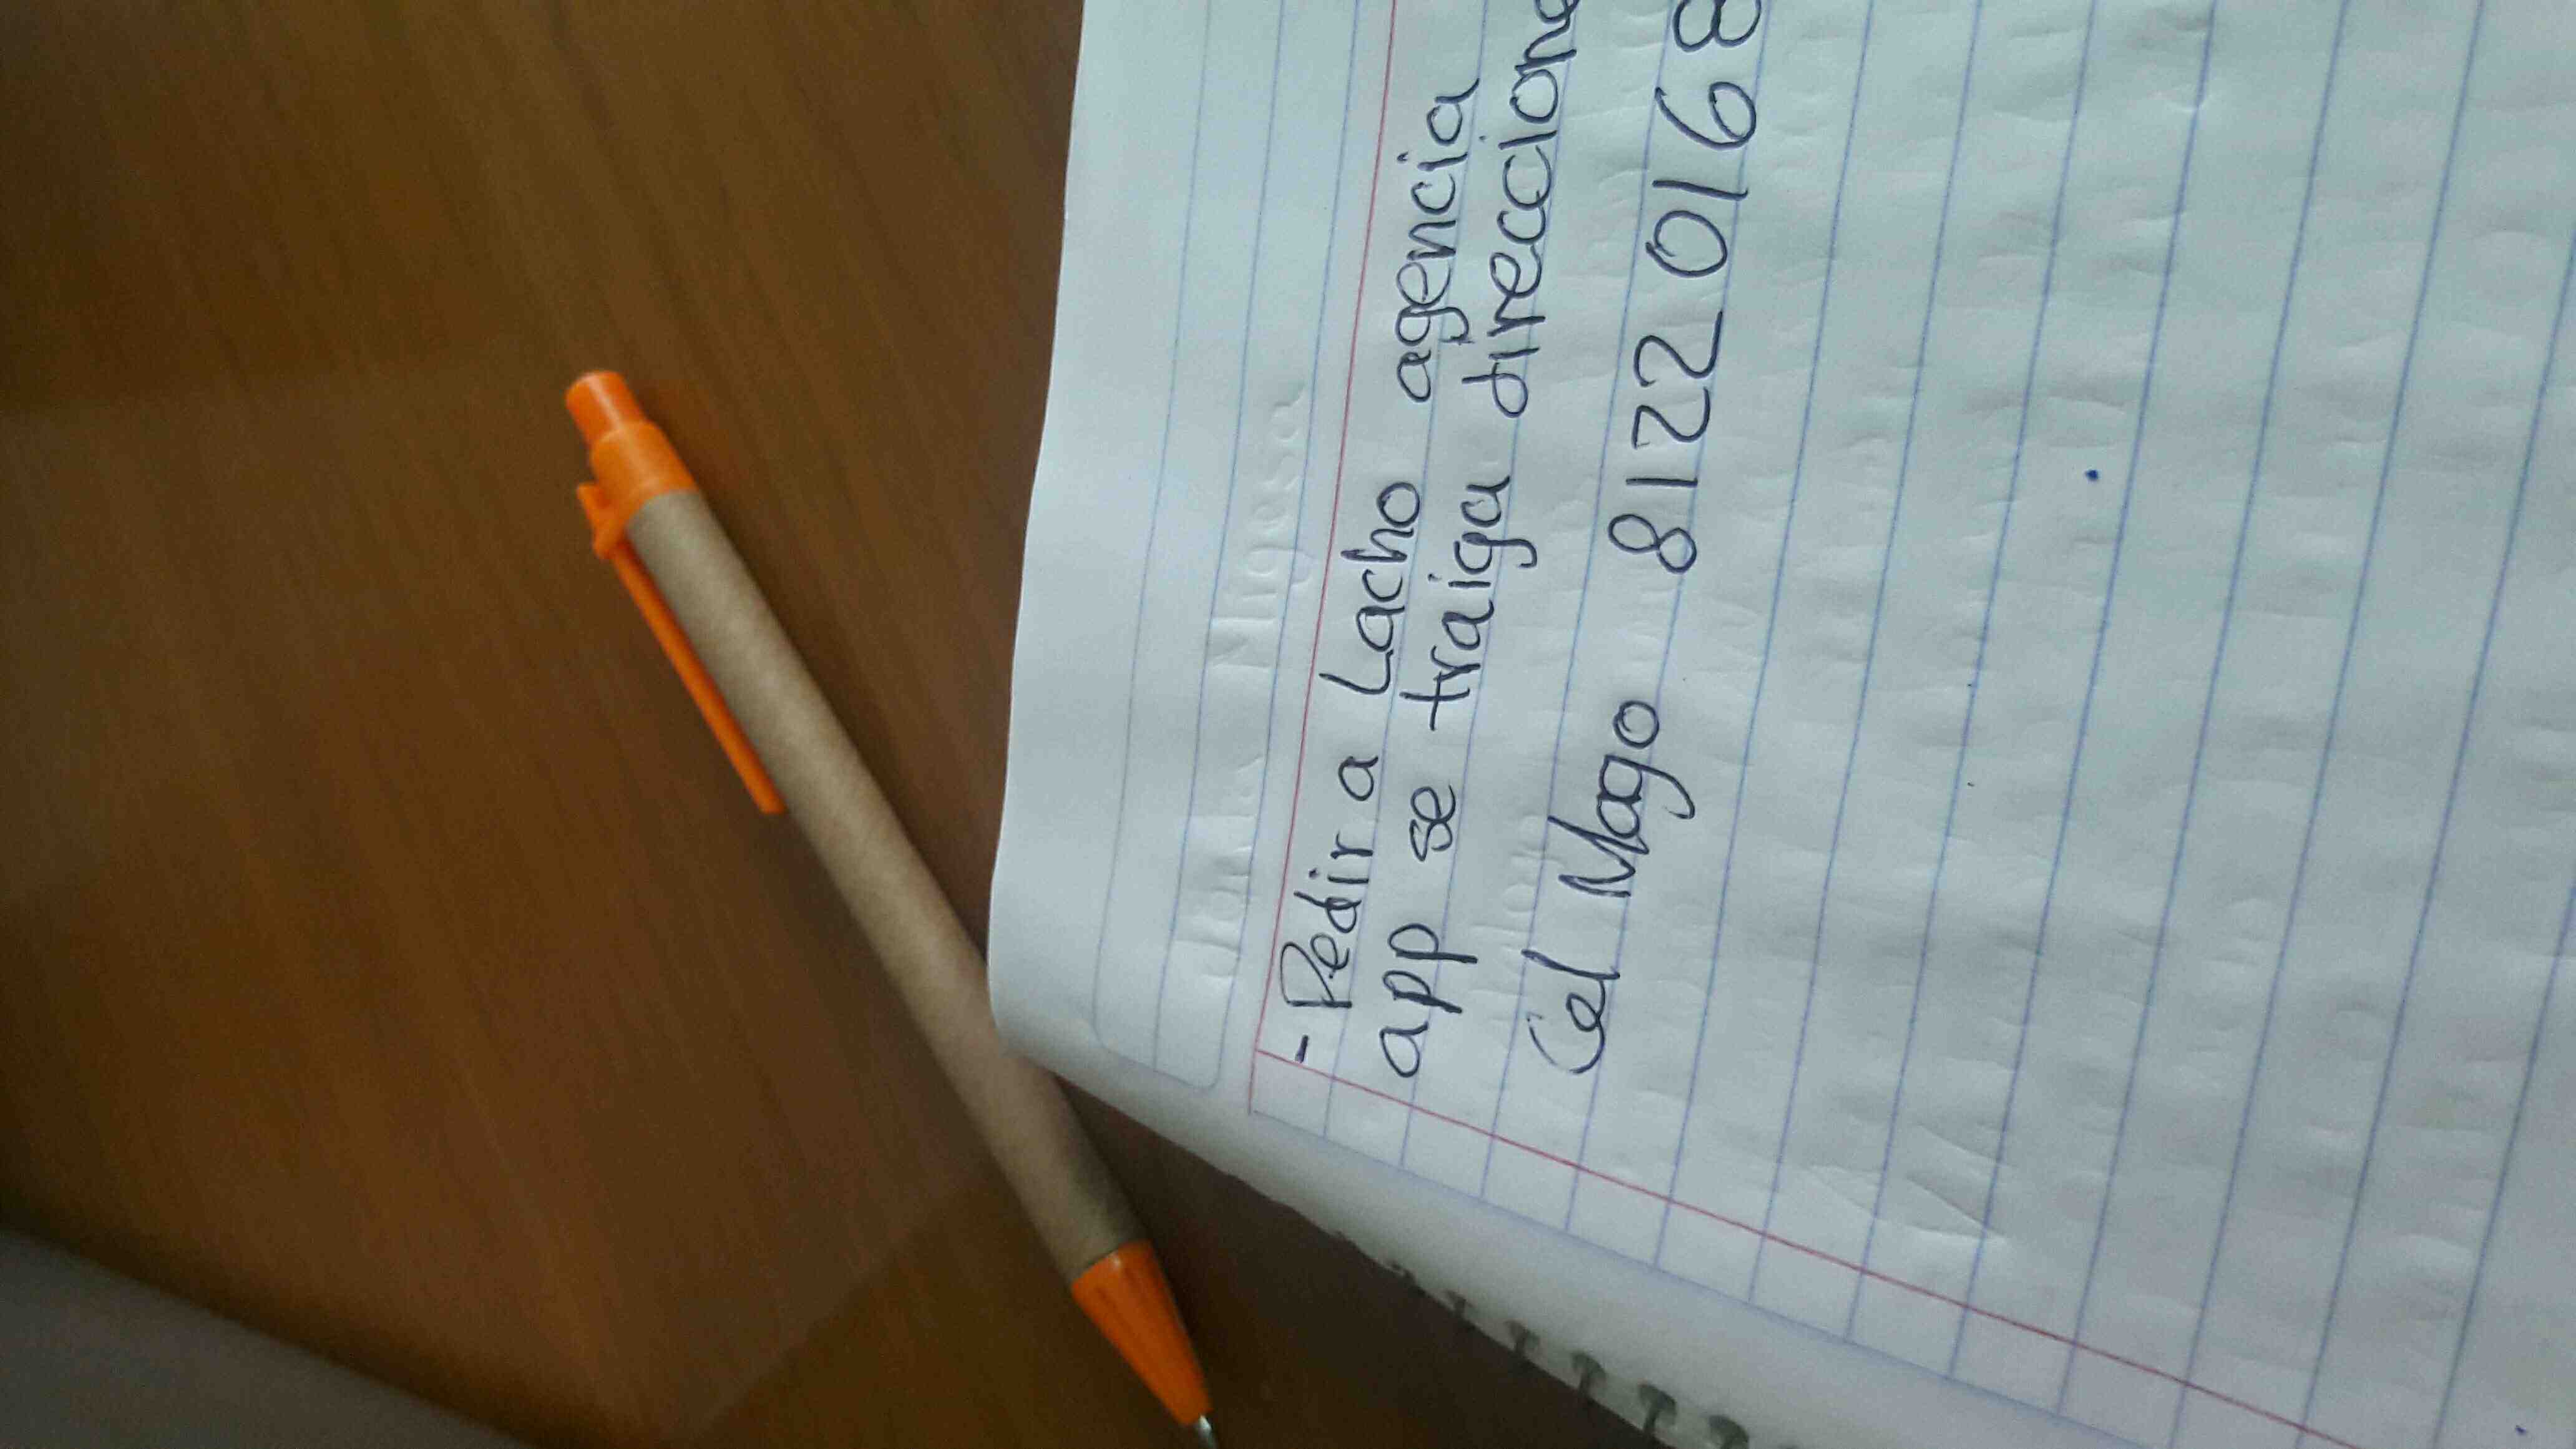 - Pedir a Lacho agencia
app se traiga direccione
Cel Mago 8122 0168